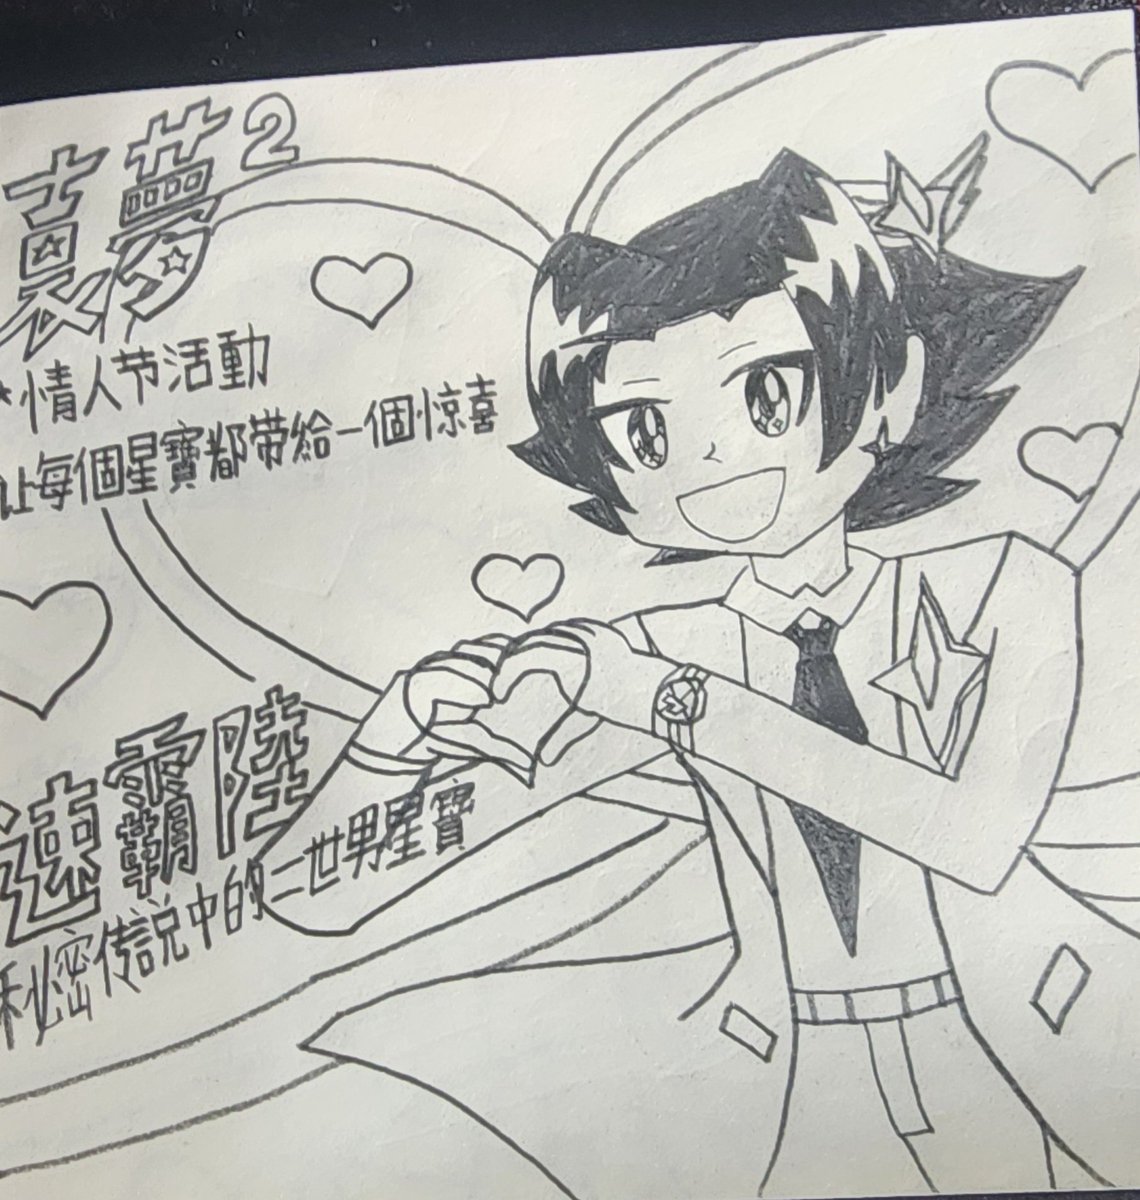 袁夢2
*情人节活動
让每個星寶都带給一個惊喜
速霸陸
秘密传説中的二世男星寶